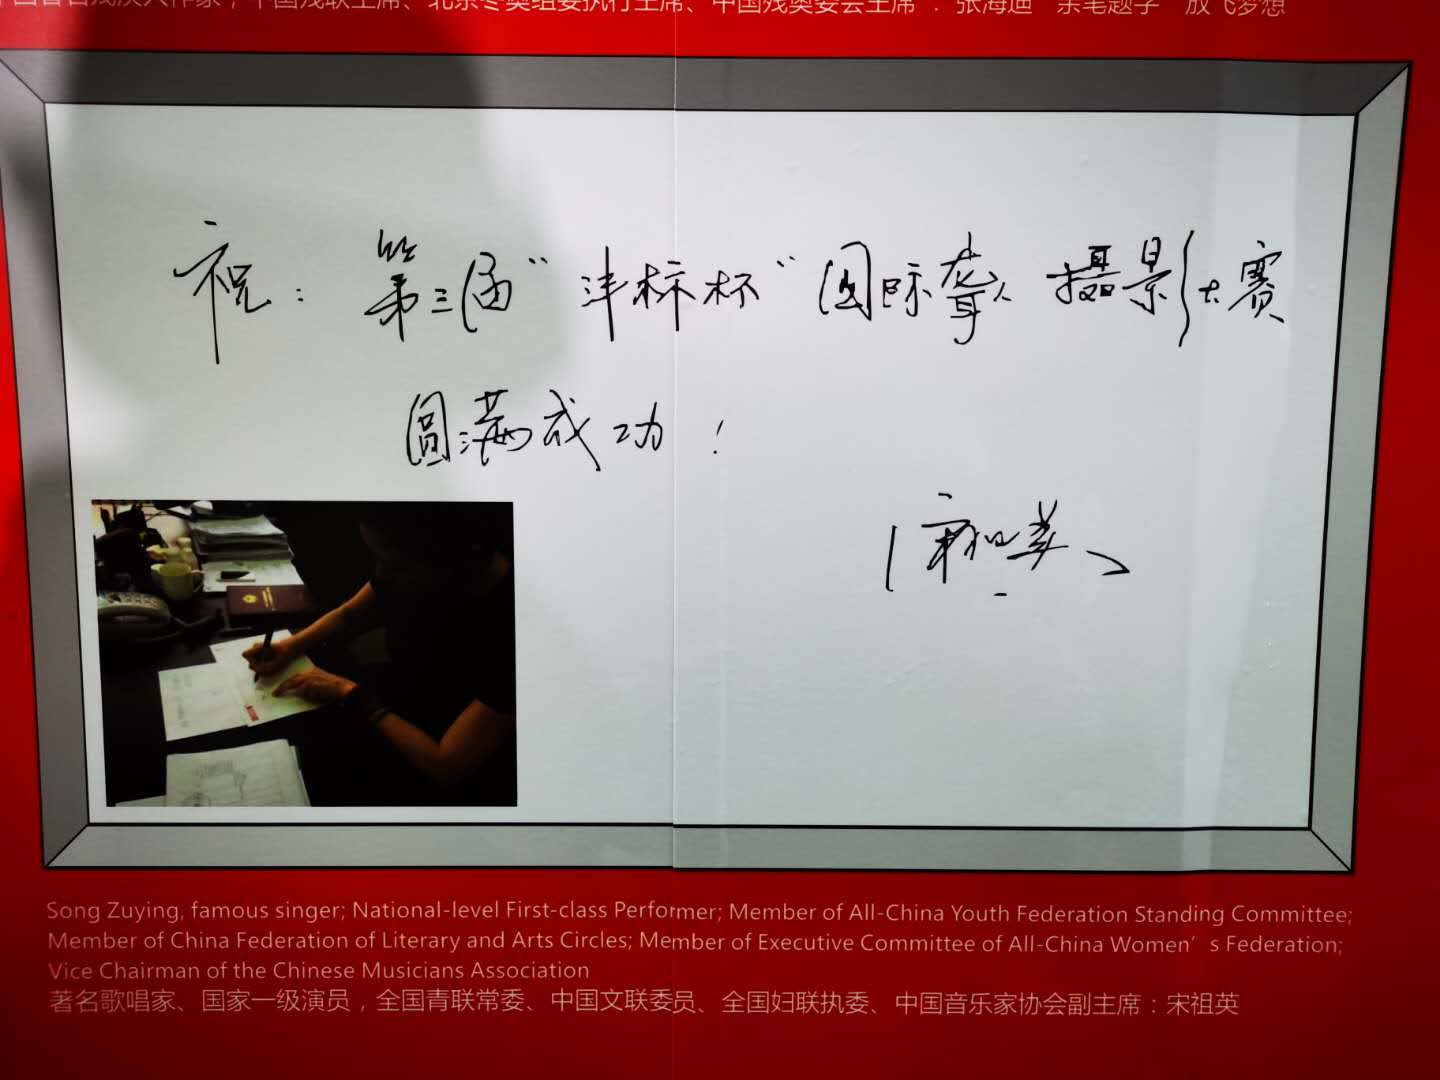 中国著名残疾人作家，中国残联主席、北京冬奥组委执行主席、中国残奥委会主席：张海迪 亲笔题字 放飞梦想
祝：第三届"沣标杯"国际聋人摄影大赛
圆满成功！
宋祖英
Song Zuying, famous singer; National-level First-class Performer; Member of All-China Youth Federation Standing Committee;
Member of China Federation of Literary and Arts Circles; Member of Executive Committee of All-China Women's Federation;
Vice Chairman of the Chinese Musicians Association
著名歌唱家、国家一级演员，全国青联常委、中国文联委员、全国妇联执委、中国音乐家协会副主席：宋祖英